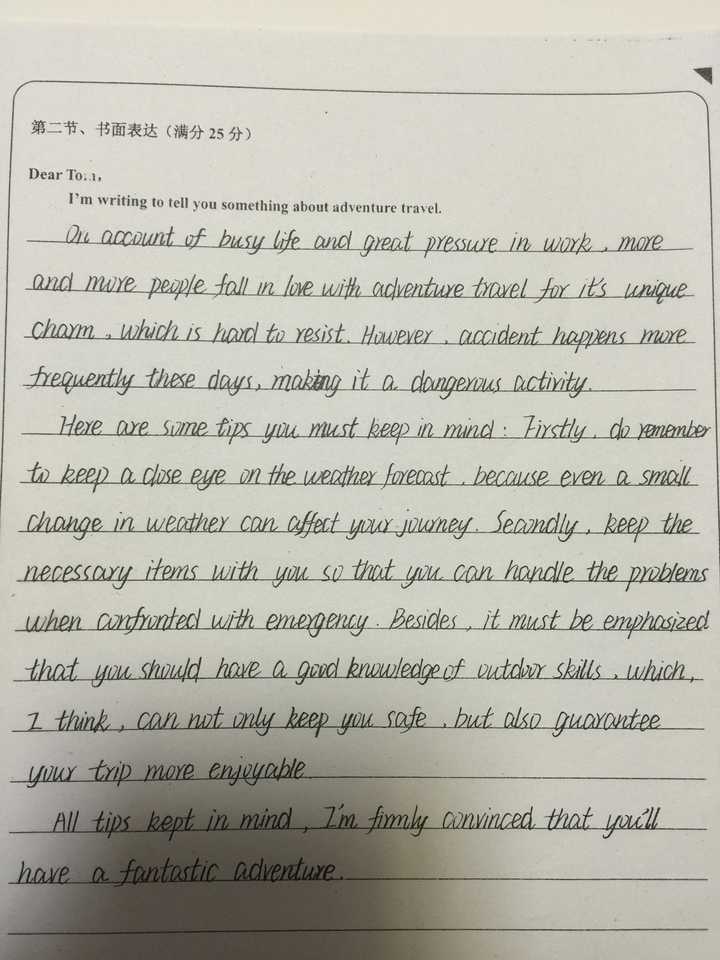 第二节、书面表达（满分 25 分）
Dear
I'm writing to tell you something about adventure travel.
On account of busy life and great pressure in work, more
and more people fall in love with adventure travel for it's unique
charm, which is hard to resist. However, accident happens more
frequently these days, making it a dangerous activity.
Here are some tips you must keep in mind: Firstly, do remember
to keep a close eye on the weather forecast, because even a small
change in weather can affect your journey. Secondly, keep the
necessary items with you so that you can handle the problems
when confronted with emergency. Besides, it must be emphasized
that you should have a good knowledge of outdoor skills, which,
I think, can not only keep you safe, but also guarantee
your trip more enjoyable.
All tips kept in mind, I'm firmly convinced that you'll
have a fantastic adventure.